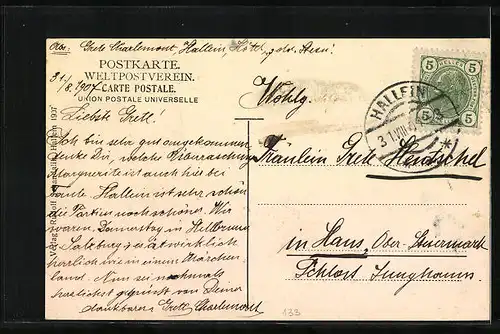 Abs. Grete Charlemont, Hallein, Hôtel gold. Stern!
POSTKARTE.
WELTPOSTVEREIN.
CARTE POSTALE.
UNION POSTALE UNIVERSELLE
31./8. 1907
Liebste Gretl!
Ich bin sehr gut angekommen
denke Dir, welche Überraschung
Marguerite ist auch hier bei
Tante. Hallein ist sehr schön
die Partien noch schöner. Wir
waren Donnerstag in Hellbrunn
Salzburg es war wirklich
herrlich wie in einem Märchen-
land. Nun sei nochmals
herzlichst gegrüsst von Deiner
dankbaren Gretl Charlemont
Wohlg.
Fräulein Grete Hentschel
in Haus, Ober-Steiermark
Schloss
5 5
HALLEIN
5 5
Verlag Rudolf Hallein 1907
133